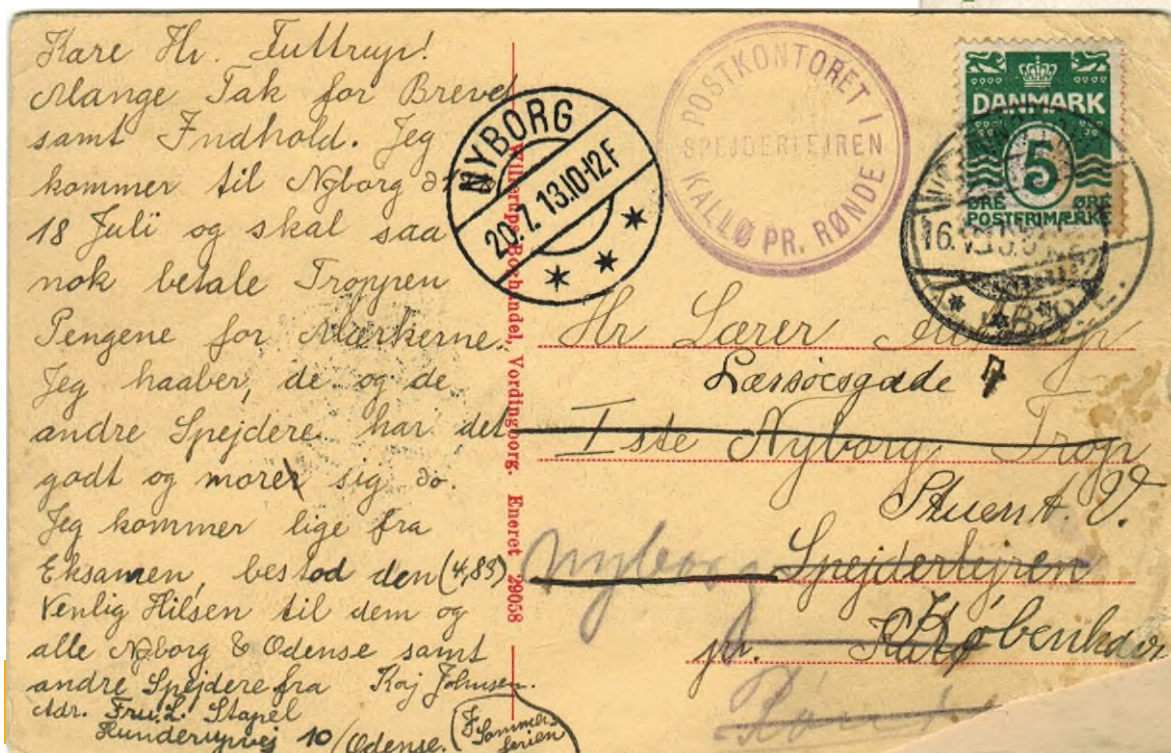 Kære Hr. Tuttrup!
Mange Tak for Brevet
samt Indhold. Jeg
kommer til Nyborg d.
18 Juli og skal saa
nok betale Troppen
Pengene for Mærkerne.
Jeg haaber, de og de
andre Spejdere har det
godt og morer sig do.
Jeg kommer lige fra
Eksamen, bestod den (4,85)
Venlig Hilsen til dem og
alle Nyborg & Odense samt
andre Spejdere fra Kaj Johnsen.
Adr. Fru L. Stapel
Hunderupvej 10/Odense. (I Sommer-
ferien
NYBORG
20.7.13.10-12F
Willerups Boghandel, Vordingborg. Eneret 29058
POSTKONTORET I
SPEJDERLEJREN
KALLØ PR. RØNDE
DANMARK
5
ØRE ØRE
POSTFRIMÆRKE
Hr Lærer
Læssøesgade 7
Iste Nyborg Trop
Stuen t. V.
Nyborg Spejderlejren
pr. København